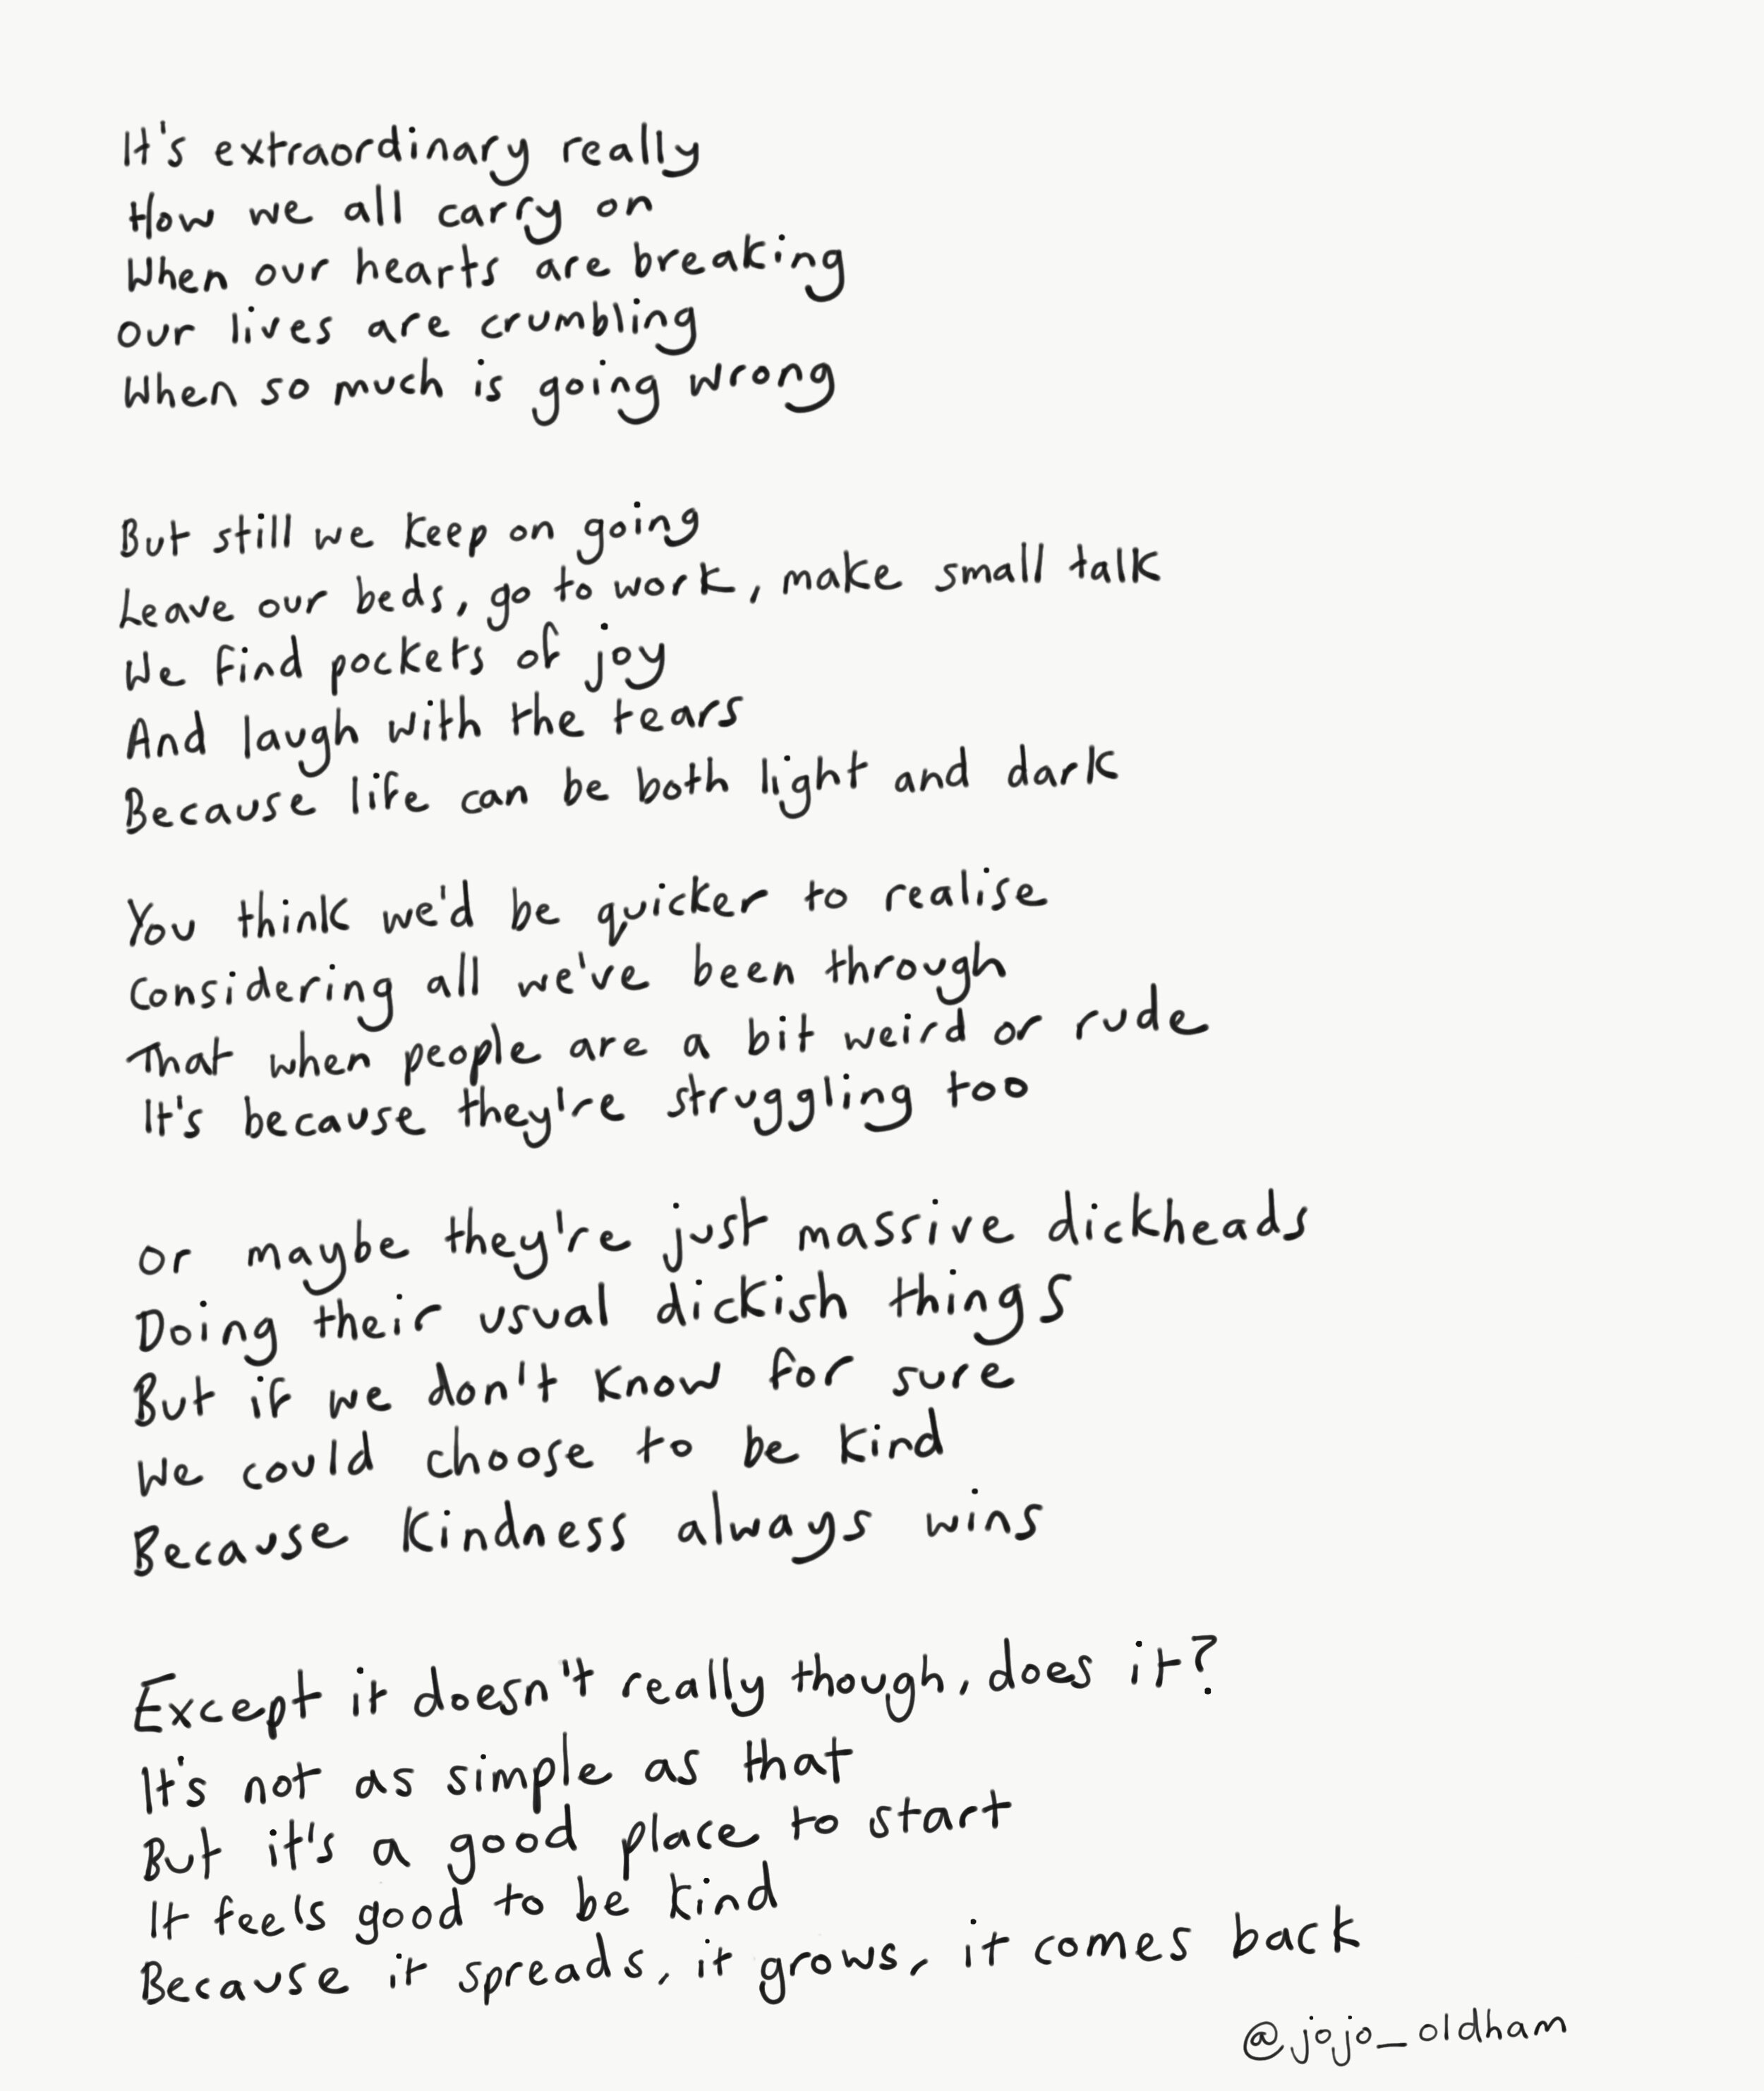 It's extraordinary really
How we all carry on
When our hearts are breaking
our lives are crumbling
When so much is going wrong
But still we keep on going
Leave our beds, go to work, make small talk
We find pockets of joy
And laugh with the tears
Because life can be both light and dark
You think we'd be quicker to realise
Considering all we've been through
That when people are a bit weird or rude
It's because they're struggling too
Or maybe they're just massive dickheads
Doing their usual dickish things
But if we don't know for sure
We could choose to be kind
Because kindness always wins
Except it doesn't really though, does it?
It's not as simple as that
But it's a good place to start
It feels good to be kind
Because it spreads, it grows, it comes back
@jojo_oldham